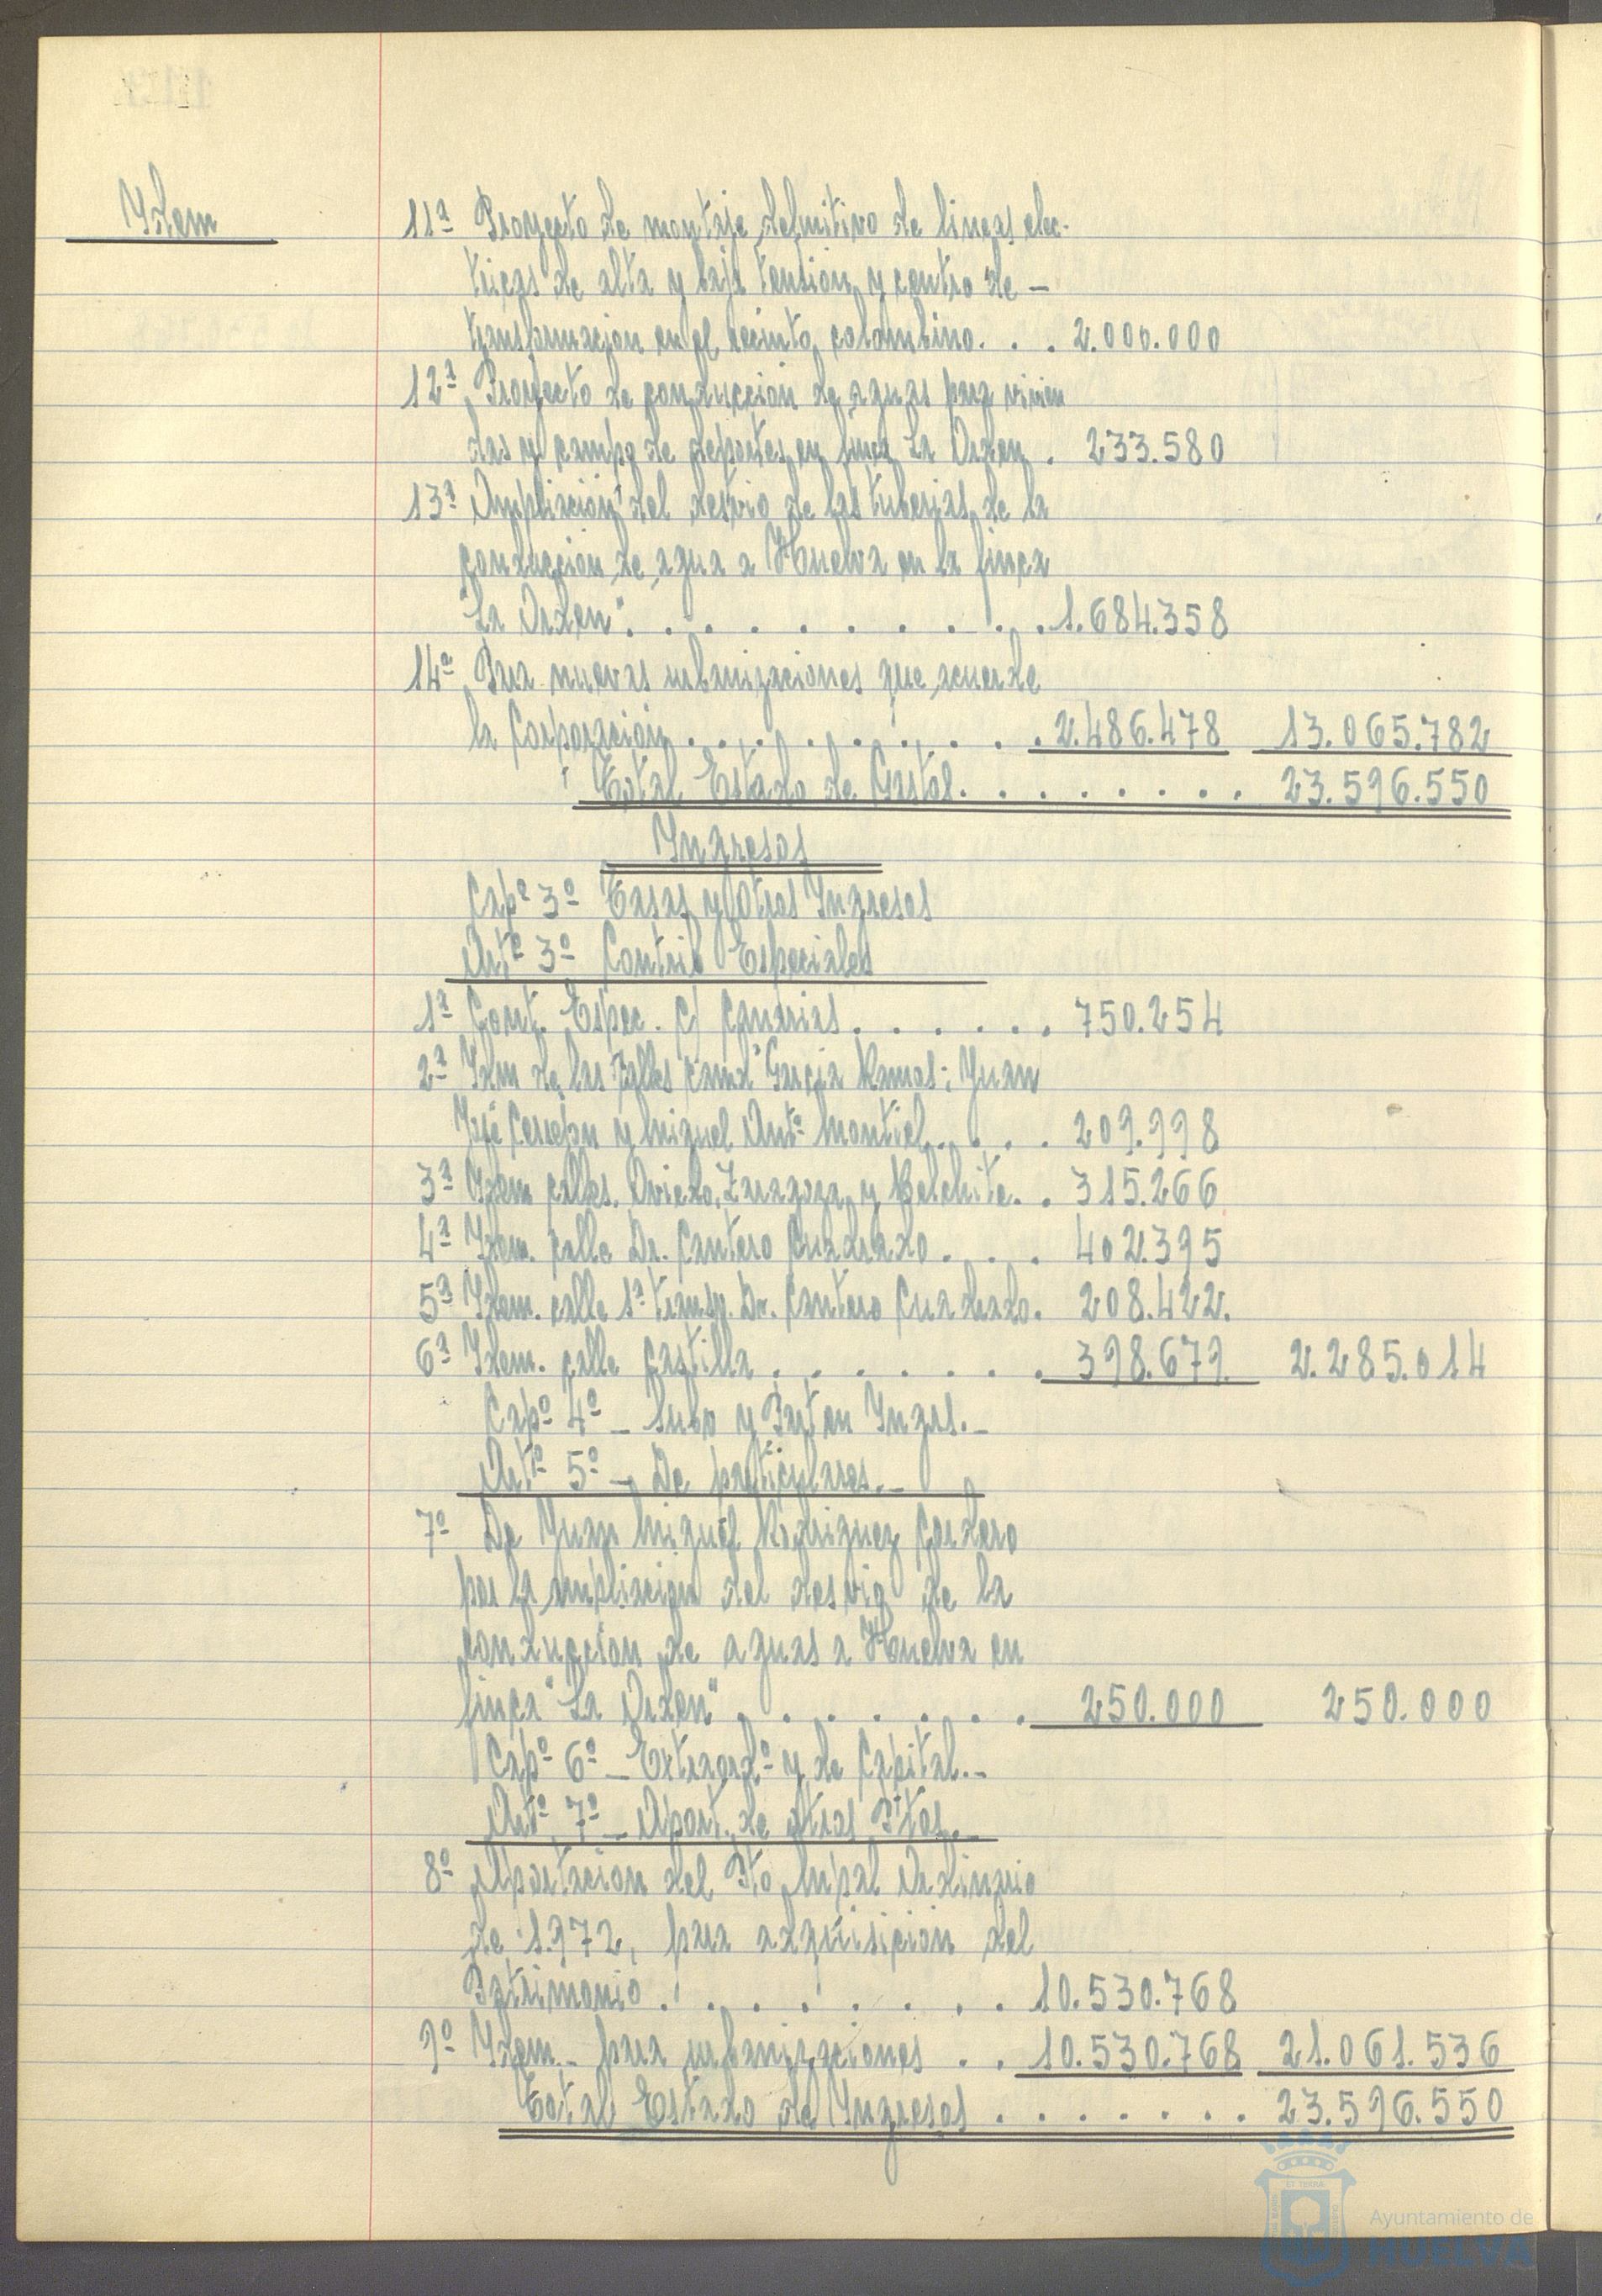 Ydem
11ª Proyecto de montaje definitivo de lineas elec-
tricas de alta y baja tension y centro de -
transformacion en el recinto colombino. . . 2.000.000
12ª Proyecto de conduccion de aguas para vivien
das y campo de deportes en finca La Orden . 233.580
13ª Ampliacion del desvio de las tuberias de la
conduccion de agua a Huelva en la finca
"La Orden". . . . . . . . . . 1.684.358
14ª Para nuevas urbanizaciones que acuerde
la Corporacion . . . . . . . . . 2.486.478 13.065.782
Total Estado de Gastos. . . . . . . . 23.596.550
Ingresos
Capº 3º Tasas y Otros Ingresos
Artº 3º Contrib Especiales
1ª Cont. Espec. c/ Canarias . . . . . . 750.254
2ª Idem de las calles Cama Garcia Ramos; Juan
José Cerrejon y Miguel Antº Montiel. . . . 209.998
3ª Idem calles. Oviedo, Zaragoza y Belchite. . 315.266
4ª Idem. calle Dr. Cantero Cuadrado . . . 402.395
5ª Idem. calle 1ª transv. Dr. Cantero Cuadrado. 208.422.
6ª Idem. calle Castilla . . . . . . . 398.679. 2.285.014
Capº 4º - Subv y Part en Ingrs.-
Artº 5º - De particulares.-
7º De Juan Miguel Rodriguez Cordero
por la ampliacion del desvio de la
conduccion de aguas a Huelva en
finca "La Orden" . . . . . . . 250.000 250.000
Capº 6º - Extraordº y de Capital.-
Artº 7º - Aport. de otros Ptos.-
8º Aportacion del Pto Mpal Ordinario
de 1.972, para adquisicion del
Patrimonio . . . . . . . . 10.530.768
9º Idem.- para urbanizaciones . . 10.530.768 21.061.536
Total Estado de Ingresos . . . . . . . 23.596.550
Ayuntamiento de
HUELVA